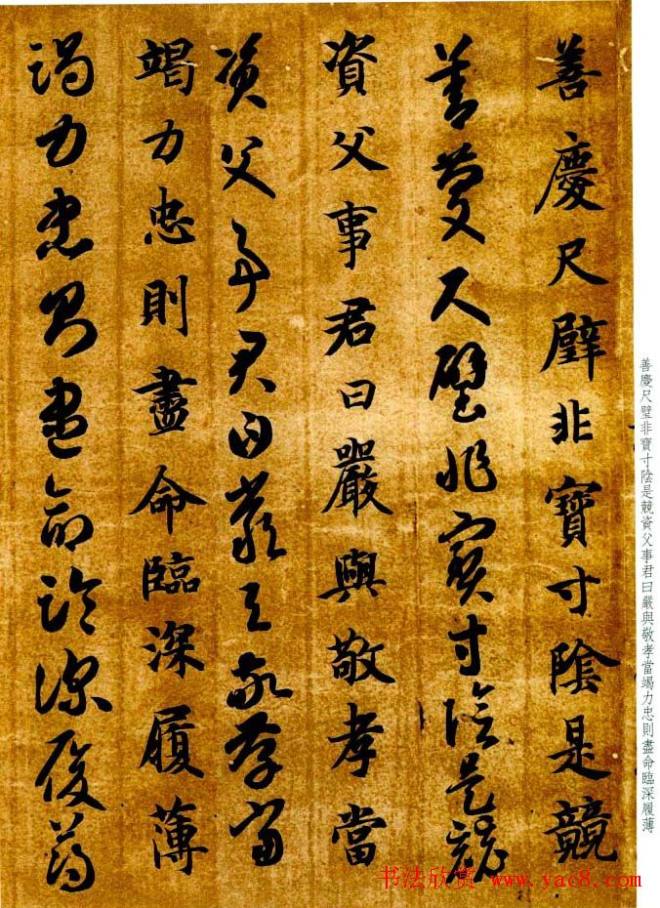 善慶尺璧非寶寸陰是競
善慶尺璧非寶寸陰是競
資父事君曰嚴與敬孝當
資父事君曰嚴與敬孝當
竭力忠則盡命臨深履薄
竭力忠則盡命臨深履薄
善慶尺璧非寶寸陰是競資父事君曰嚴與敬孝當竭力忠則盡命臨深履薄
书法欣赏 www.yac8.com